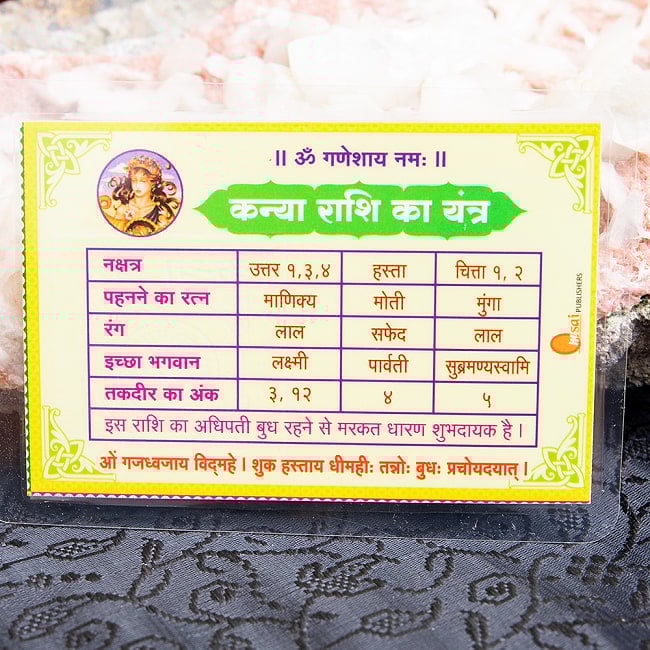 ॥ ॐ गणेशाय नमः ॥
कन्या राशि का यंत्र
नक्षत्र उत्तर १,३,४ हस्ता चित्ता १, २
पहनने का रत्न माणिक्य मोती मुंगा
रंग लाल सफेद लाल
इच्छा भगवान लक्ष्मी पार्वती सुब्रमण्यस्वामि
तकदीर का अंक ३, १२ ४ ५
इस राशि का अधिपती बुध रहने से मरकत धारण शुभदायक है ।
ओं गजध्वजाय विद्महे । शुक हस्ताय धीमहीः तन्नोः बुधः प्रचोयदयात् ।
PUBLISHERS